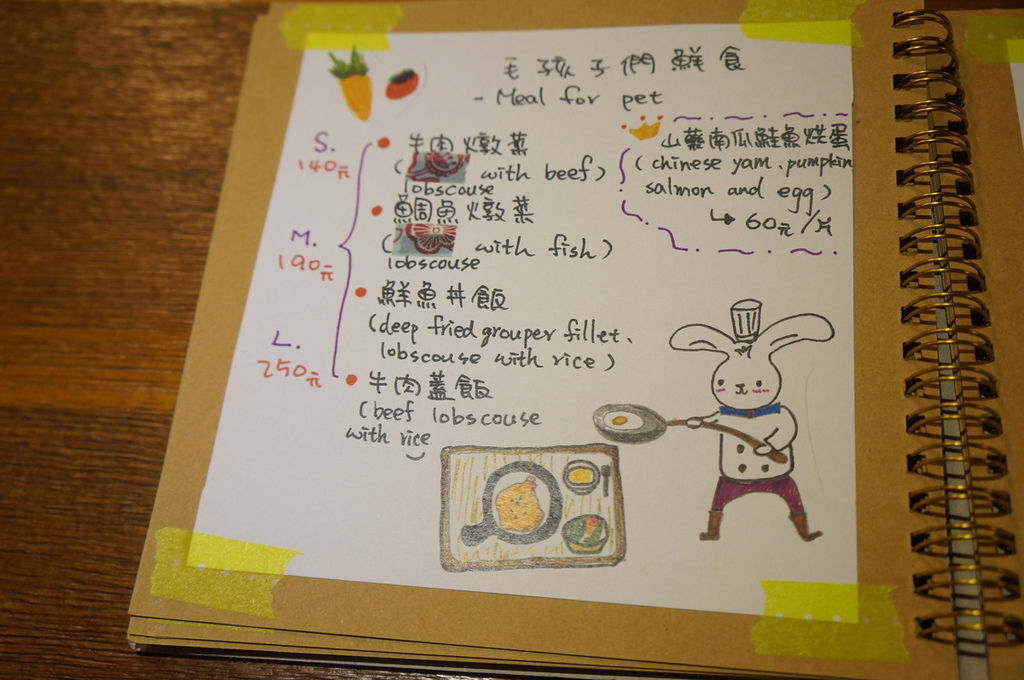 毛孩子們鮮食
- Meal for pet
S.
140元
M.
190元
L.
250元
牛肉燉菜
( with beef)
lobscouse
鯛魚燉菜
( with fish)
lobscouse
鮮魚丼飯
(deep fried grouper fillet、
lobscouse with rice)
牛肉蓋飯
(beef lobscouse
with rice
山藥南瓜鮭魚烘蛋
(chinese yam、pumpkin
salmon and egg)
↳ 60元/片